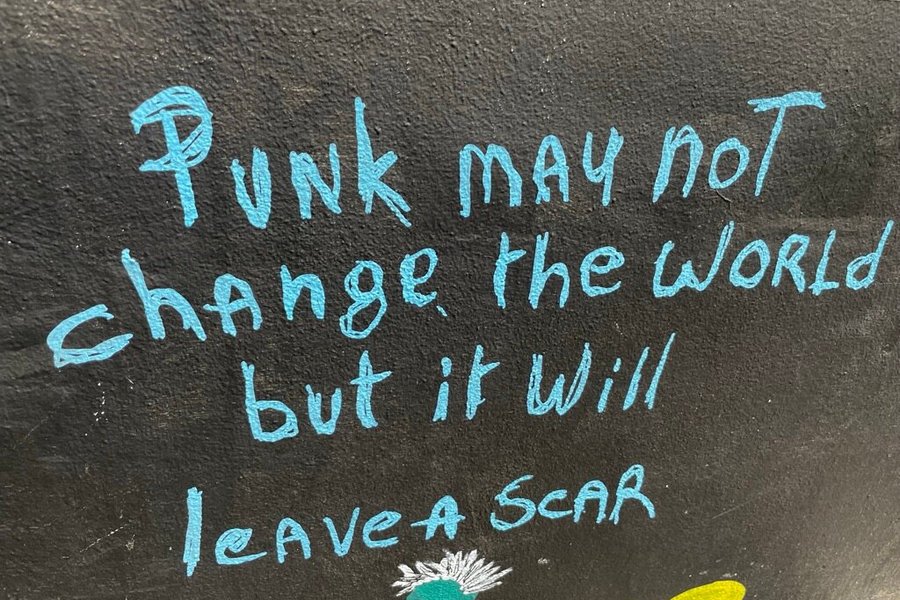 Punk may not
change the world
but it will
leave a scar